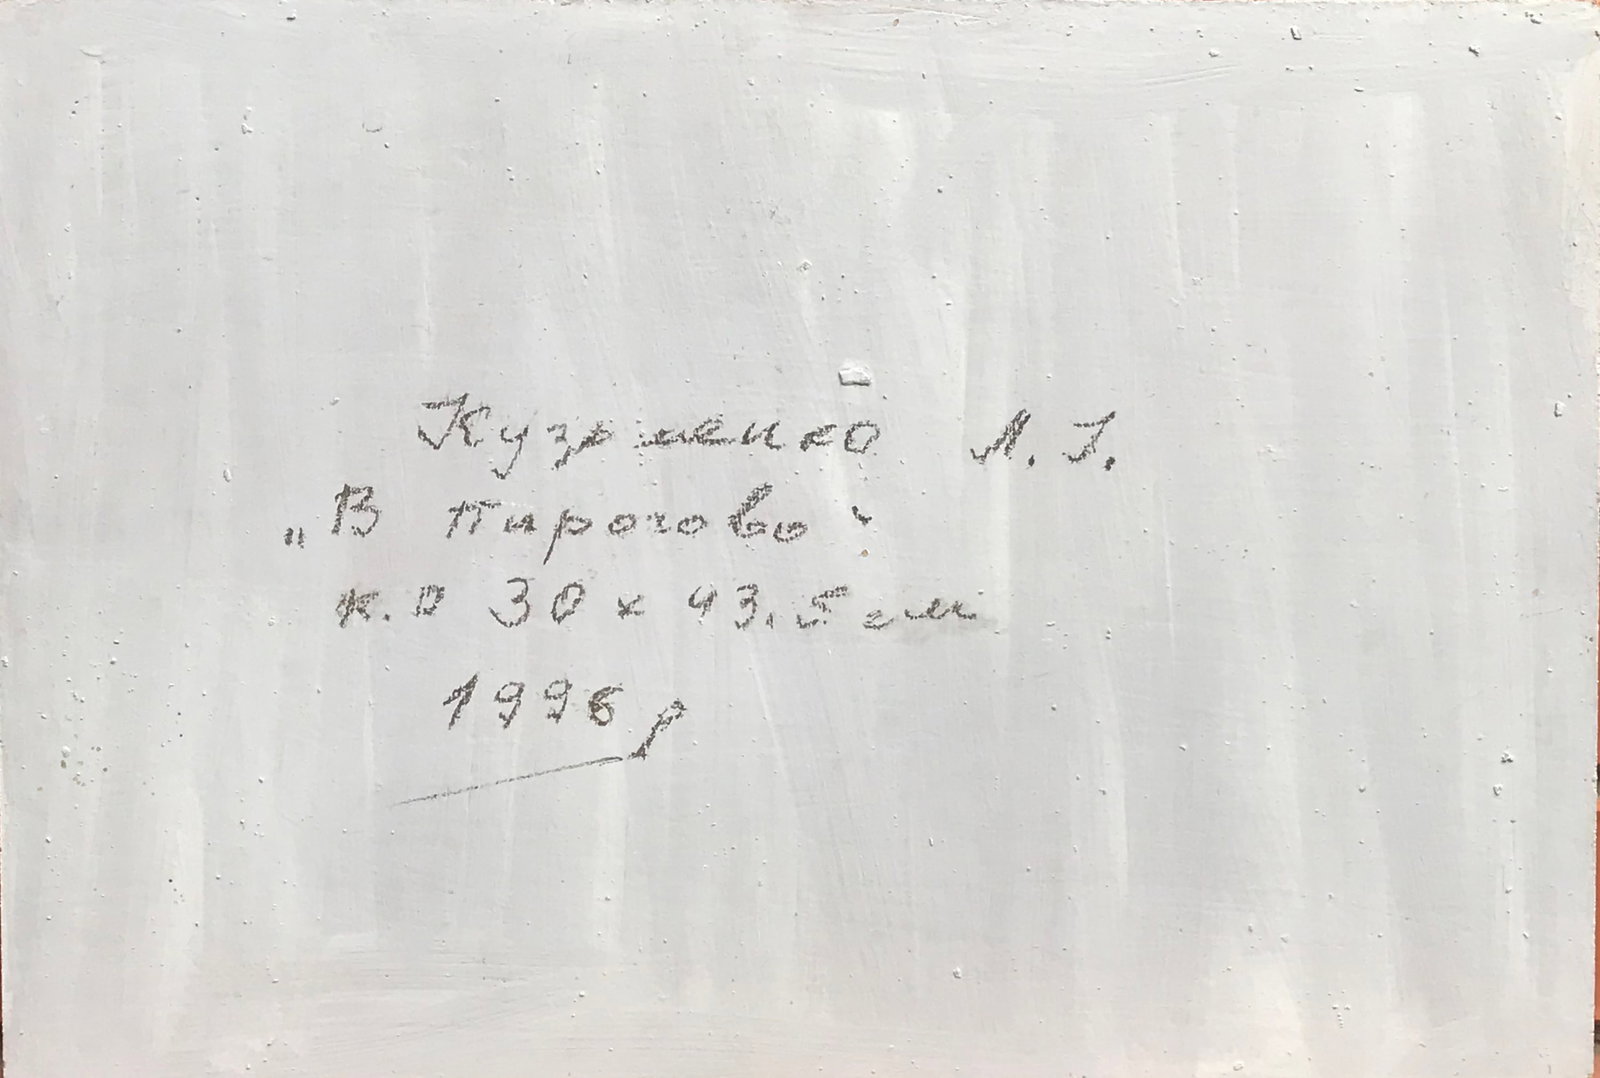 Кузьменко Л. І.
„В Пирогово"
к.о 30 х 43.5 см
1996 р